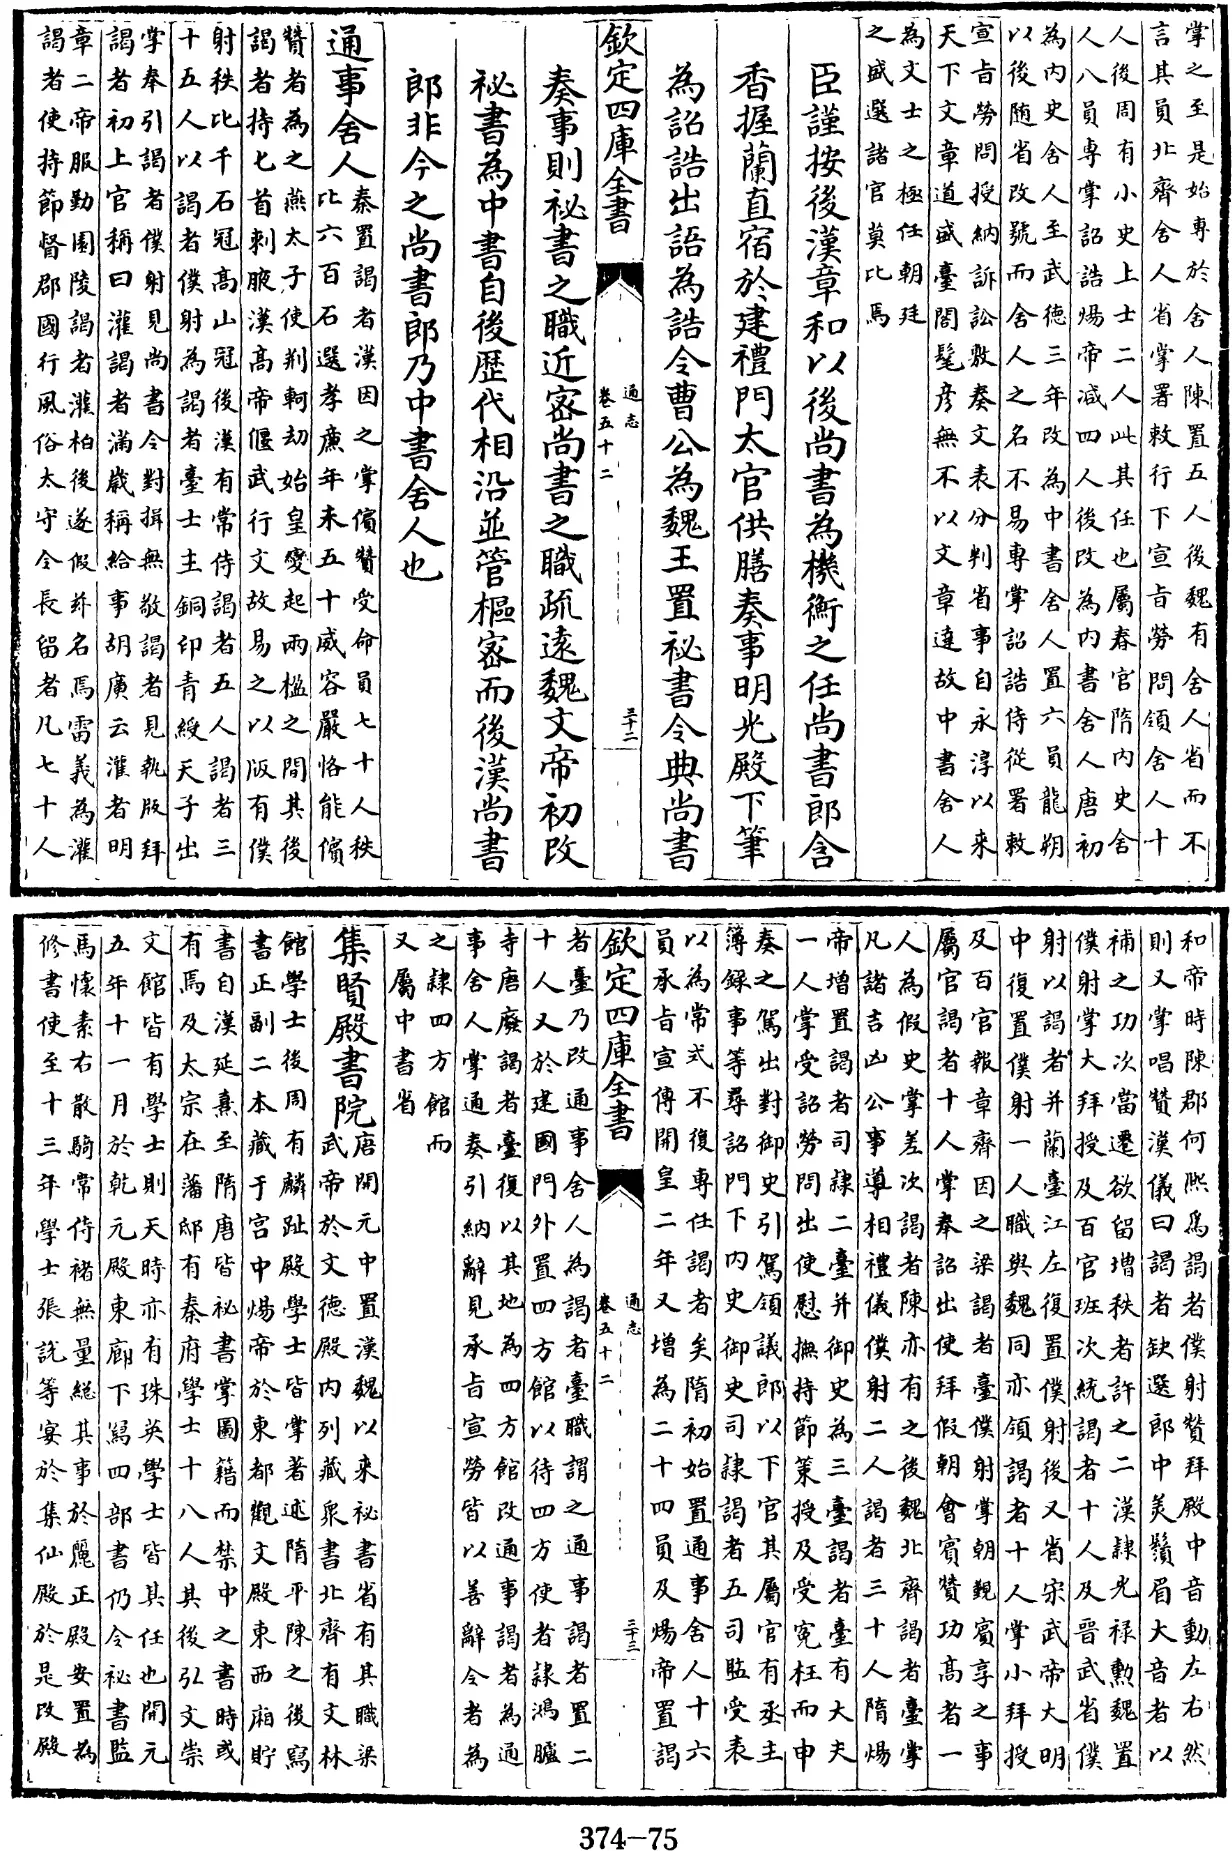 掌之至是始專於舍人陳置五人後魏有舍人省而不
言其員北齊舍人省掌署敕行下宣旨勞問領舍人十
人後周有小史上士二人此其任也屬春官隋内史舍
人八員專掌詔誥煬帝减四人後改為内書舍人唐初
為内史舍人至武德三年改為中書舍人置六員龍朔
以後随省改號而舍人之名不易專掌詔誥侍從署敕
宣旨勞問授納訴訟敷奏文表分判省事自永淳以來
天下文章道盛臺閣髦彦無不以文章達故中書舍人
為文士之極任朝廷
之盛選諸官莫比焉
臣謹按後漢章和以後尚書為機衡之任尚書郎含
香握蘭直宿於建禮門太官供膳奏事明光殿下筆
為詔誥出語為誥令曹公為魏王置祕書令典尚書
欽定四庫全書
通志
卷五十二
三十二
奏事則祕書之職近密尚書之職疏遠魏文帝初改
祕書為中書自後歴代相沿並管樞密而後漢尚書
郎非今之尚書郎乃中書舍人也
通事舍人
秦置謁者漢因之掌儐贊受命員七十人秩
比六百石選孝廉年未五十威容嚴恪能儐
贊者為之燕太子使荆軻刼始皇變起兩楹之間其後
謁者持匕首刺腋漢高帝偃武行文故易之以版有僕
射秩比千石冠高山冠後漢有常侍謁者五人謁者三
十五人以謁者僕射為謁者臺士主銅印青綬天子出
掌奉引謁者僕射見尚書令對揖無敬謁者見執版拜
謁者初上官稱曰灌謁者滿歲稱給事胡廣云灌者明
章二帝服勤園陵謁者灌柏後遂假茲名焉雷義為灌
謁者使持節督郡國行風俗太守令長留者凡七十人
和帝時陳郡何熙為謁者僕射贊拜殿中音動左右然
則又掌唱贊漢儀曰謁者缺選郎中美鬚眉大音者以
補之功次當遷欲留增秩者許之二漢隸光禄勲魏置
僕射掌大拜授及百官班次統謁者十人及晋武省僕
射以謁者并蘭臺江左復置僕射後又省宋武帝大明
中復置僕射一人職與魏同亦領謁者十人掌小拜授
及百官報章齊因之梁謁者臺僕射掌朝覲賓享之事
屬官謁者十人掌奉詔出使拜假朝會賓贊功高者一
人為假史掌差次謁者陳亦有之後魏北齊謁者臺掌
凡諸吉凶公事導相禮儀僕射二人謁者三十人隋煬
帝增置謁者司隷二臺并御史為三臺謁者臺有大夫
一人掌受詔勞問出使慰撫持節䇿授及受寃枉而申
奏之駕出對御史引駕領議郎以下官其屬官有丞主
簿録事等尋詔門下内史御史司隷謁者五司監受表
以為常式不復專任謁者矣隋初始置通事舍人十六
員承旨宣傳開皇二年又增為二十四員及煬帝置謁
欽定四庫全書
通志
卷五十二
三十三
者臺乃改通事舍人為謁者臺職謂之通事謁者置二
十人又於建國門外置四方館以待四方使者隷鴻臚
寺唐廢謁者臺復以其地為四方館改通事謁者為通
事舍人掌通奏引納辭見承旨宣勞皆以善辭令者為
之隷四方館而
又屬中書省
集賢殿書院
唐開元中置漢魏以來祕書省有其職梁
武帝於文德殿内列藏衆書北齊有文林
館學士後周有麟趾殿學士皆掌著述隋平陳之後寫
書正副二本藏于宫中煬帝於東都觀文殿東西廂貯
書自漢延熹至隋唐皆祕書掌圖籍而禁中之書時或
有焉及太宗在藩邸有秦府學士十八人其後弘文崇
文館皆有學士則天時亦有珠英學士皆其任也開元
五年十一月於乾元殿東廊下寫四部書仍令祕書監
馬懷素右散騎常侍褚無量緫其事於麗正殿安置為
修書使至十三年學士張説等宴於集仙殿於是改殿
374-75